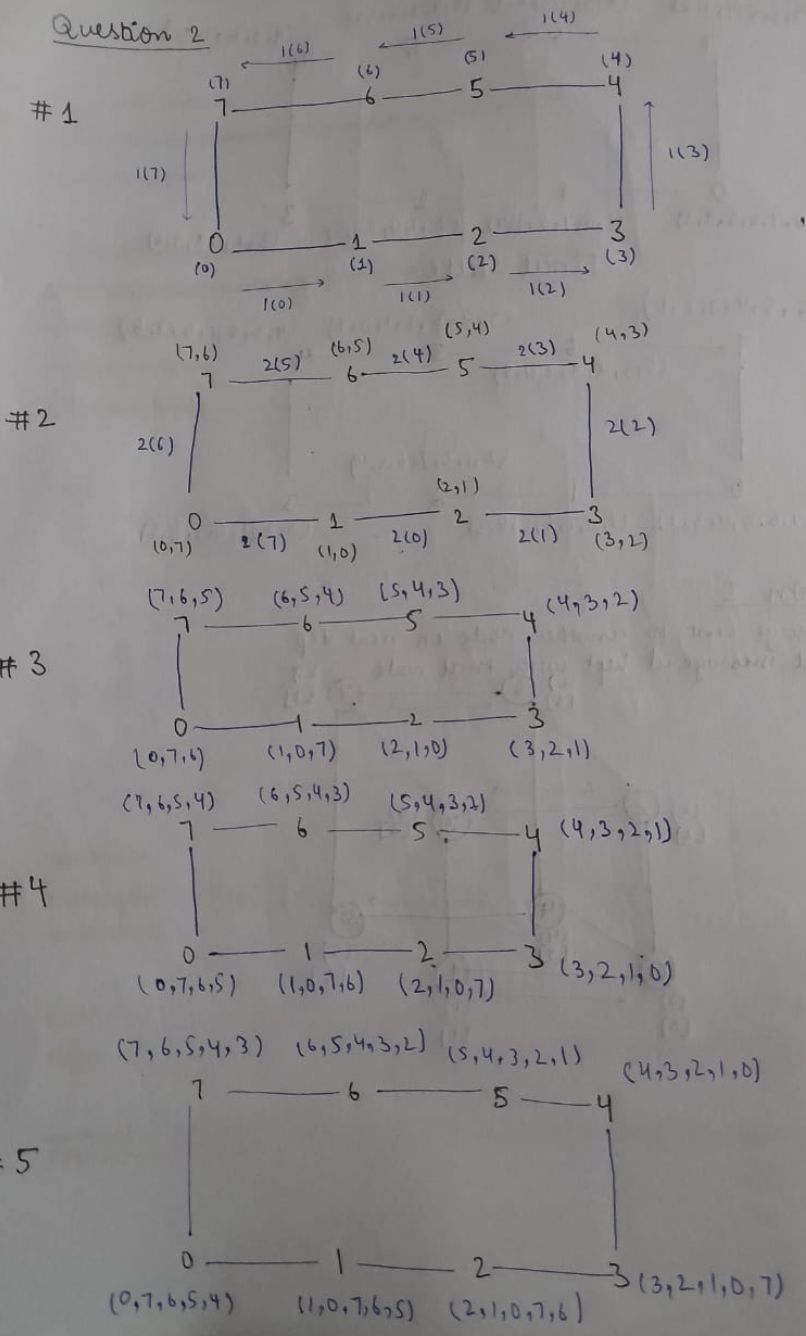 Question 2
1(6) 1(5) 1(4)
(7) (6) (5) (4)
# 1 7 6 5 4
1(7) 1(3)
0 1 2 3
(0) (1) (2) (3)
1(0) 1(1) 1(2)
(7,6) (6,5) (5,4) (4,3)
7 2(5) 6 2(4) 5 2(3) 4
#2
2(6) 2(2)
(2,1)
0 1 2 3
(0,7) 2(7) (1,0) 2(0) 2(1) (3,2)
(7,6,5) (6,5,4) (5,4,3) (4,3,2)
7 6 5 4
# 3
0 1 2 3
(0,7,6) (1,0,7) (2,1,0) (3,2,1)
(7,6,5,4) (6,5,4,3) (5,4,3,2)
7 6 5 4 (4,3,2,1)
#4
0 1 2 3 (3,2,1,0)
(0,7,6,5) (1,0,7,6) (2,1,0,7)
(7,6,5,4,3) (6,5,4,3,2) (5,4,3,2,1) (4,3,2,1,0)
7 6 5 4
5
0 1 2 3 (3,2,1,0,7)
(0,7,6,5,4) (1,0,7,6,5) (2,1,0,7,6)